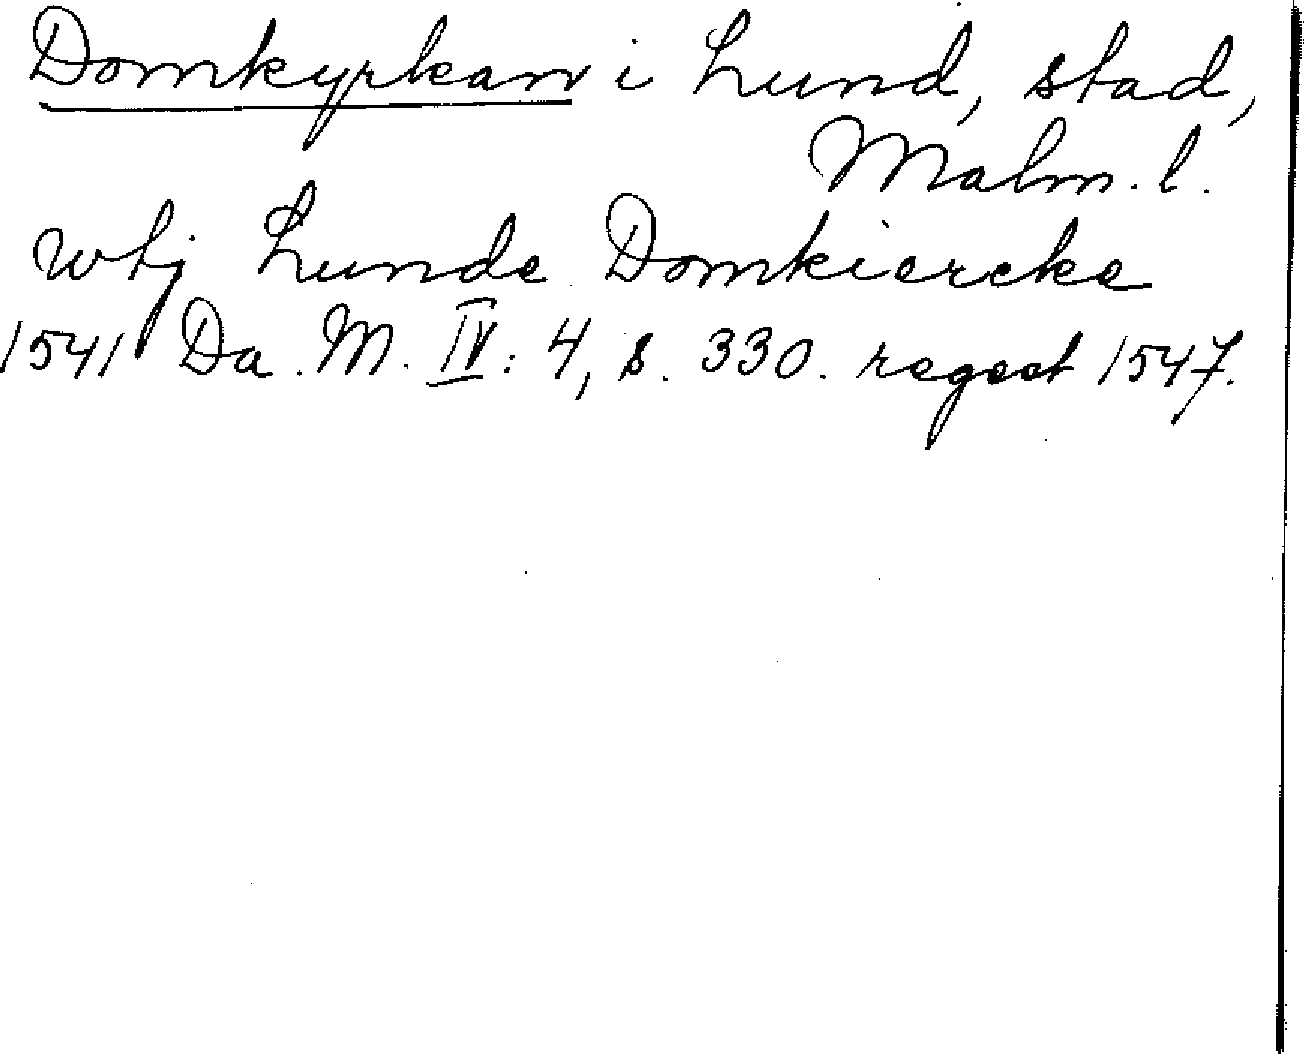 Domkyrkan i Lund, stad,
Malm. l.
wtj Lunde Domkiercke
1541 Da. M. IV: 4, s. 330. regest 1547.